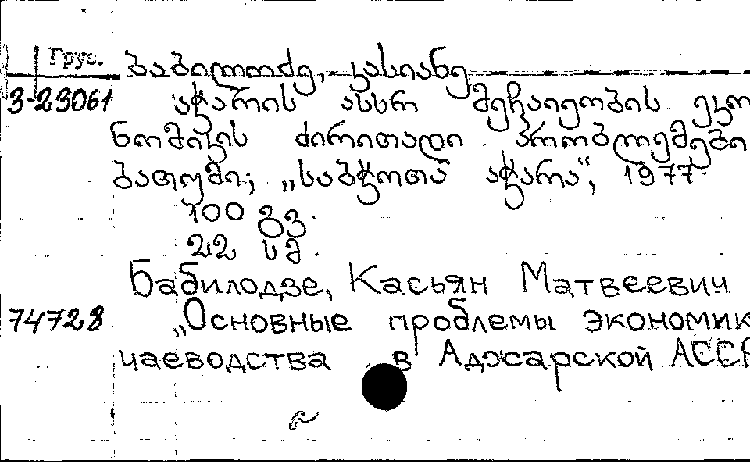 Грус.
ბაბილოძე, კასიანე
3-23061 აჭარის ასსრ მეჩაიეობის ეკო
ნომიკის ძირითადი პრობლემები
ბათუმი; „საბჭოთა აჭარა“, 1977
100 გვ.
22 სმ.
Бабилодзе, Касьян Матвеевич
74728 „Основные проблемы экономик
чаеводства в Аджарской АССР